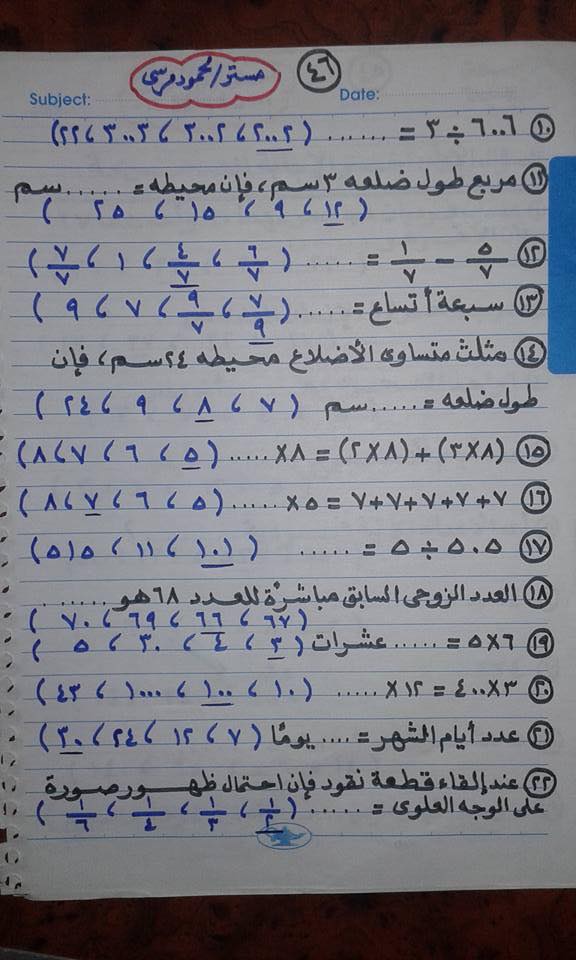 ٤٦
مستر/محمود مرسى
Subject:
Date:
⑩ ٦٠٠٦ ÷ ٣ = ...... (٢٠٠٢ ، ٣٠٠٢ ، ٣٠٠٣ ، ٢٢)
⑪ مربع طول ضلعه ٣ سم ، فإن محيطه = ...... سم
(١٢ ، ٩ ، ١٥ ، ٢٥)
⑫ ٥/٧ − ١/٧ = ...... (٦/٧ ، ٤/٧ ، ١ ، ٧/٧)
⑬ سبعة أتساع = ...... (٧/٩ ، ٩/٧ ، ٧ ، ٩)
⑭ مثلث متساوى الأضلاع محيطه ٢٤ سم ، فإن
طول ضلعه = ...... سم (٧ ، ٨ ، ٩ ، ٢٤)
⑮ (٨×٣) + (٨×٢) = ٨× ...... (٥ ، ٦ ، ٧ ، ٨)
⑯ ٧+٧+٧+٧+٧ = ٥× ...... (٥ ، ٦ ، ٧ ، ٨)
⑰ ٥٠٥ ÷ ٥ = ...... (١٠١ ، ١١ ، ٥١٥)
⑱ العدد الزوجى السابق مباشرْة للعدد ٦٨ هو ......
(٦٧ ، ٦٦ ، ٦٩ ، ٧٠)
⑲ ٦×٥ = ...... عشرات (٣ ، ٤ ، ٣٠ ، ٥)
⑳ ٣×٤٠٠ = ١٢× ...... (١٠ ، ١٠٠ ، ١٠٠٠ ، ٤٣)
㉑ عدد أيام الشهر = .... يومًا (٧ ، ١٢ ، ٢٤ ، ٣٠)
㉒ عند إلقاء قطعة نقود فإن احتمال ظهور صورة
على الوجه العلوى = ...... (١/٢ ، ١/٣ ، ١/٤ ، ١/٦)